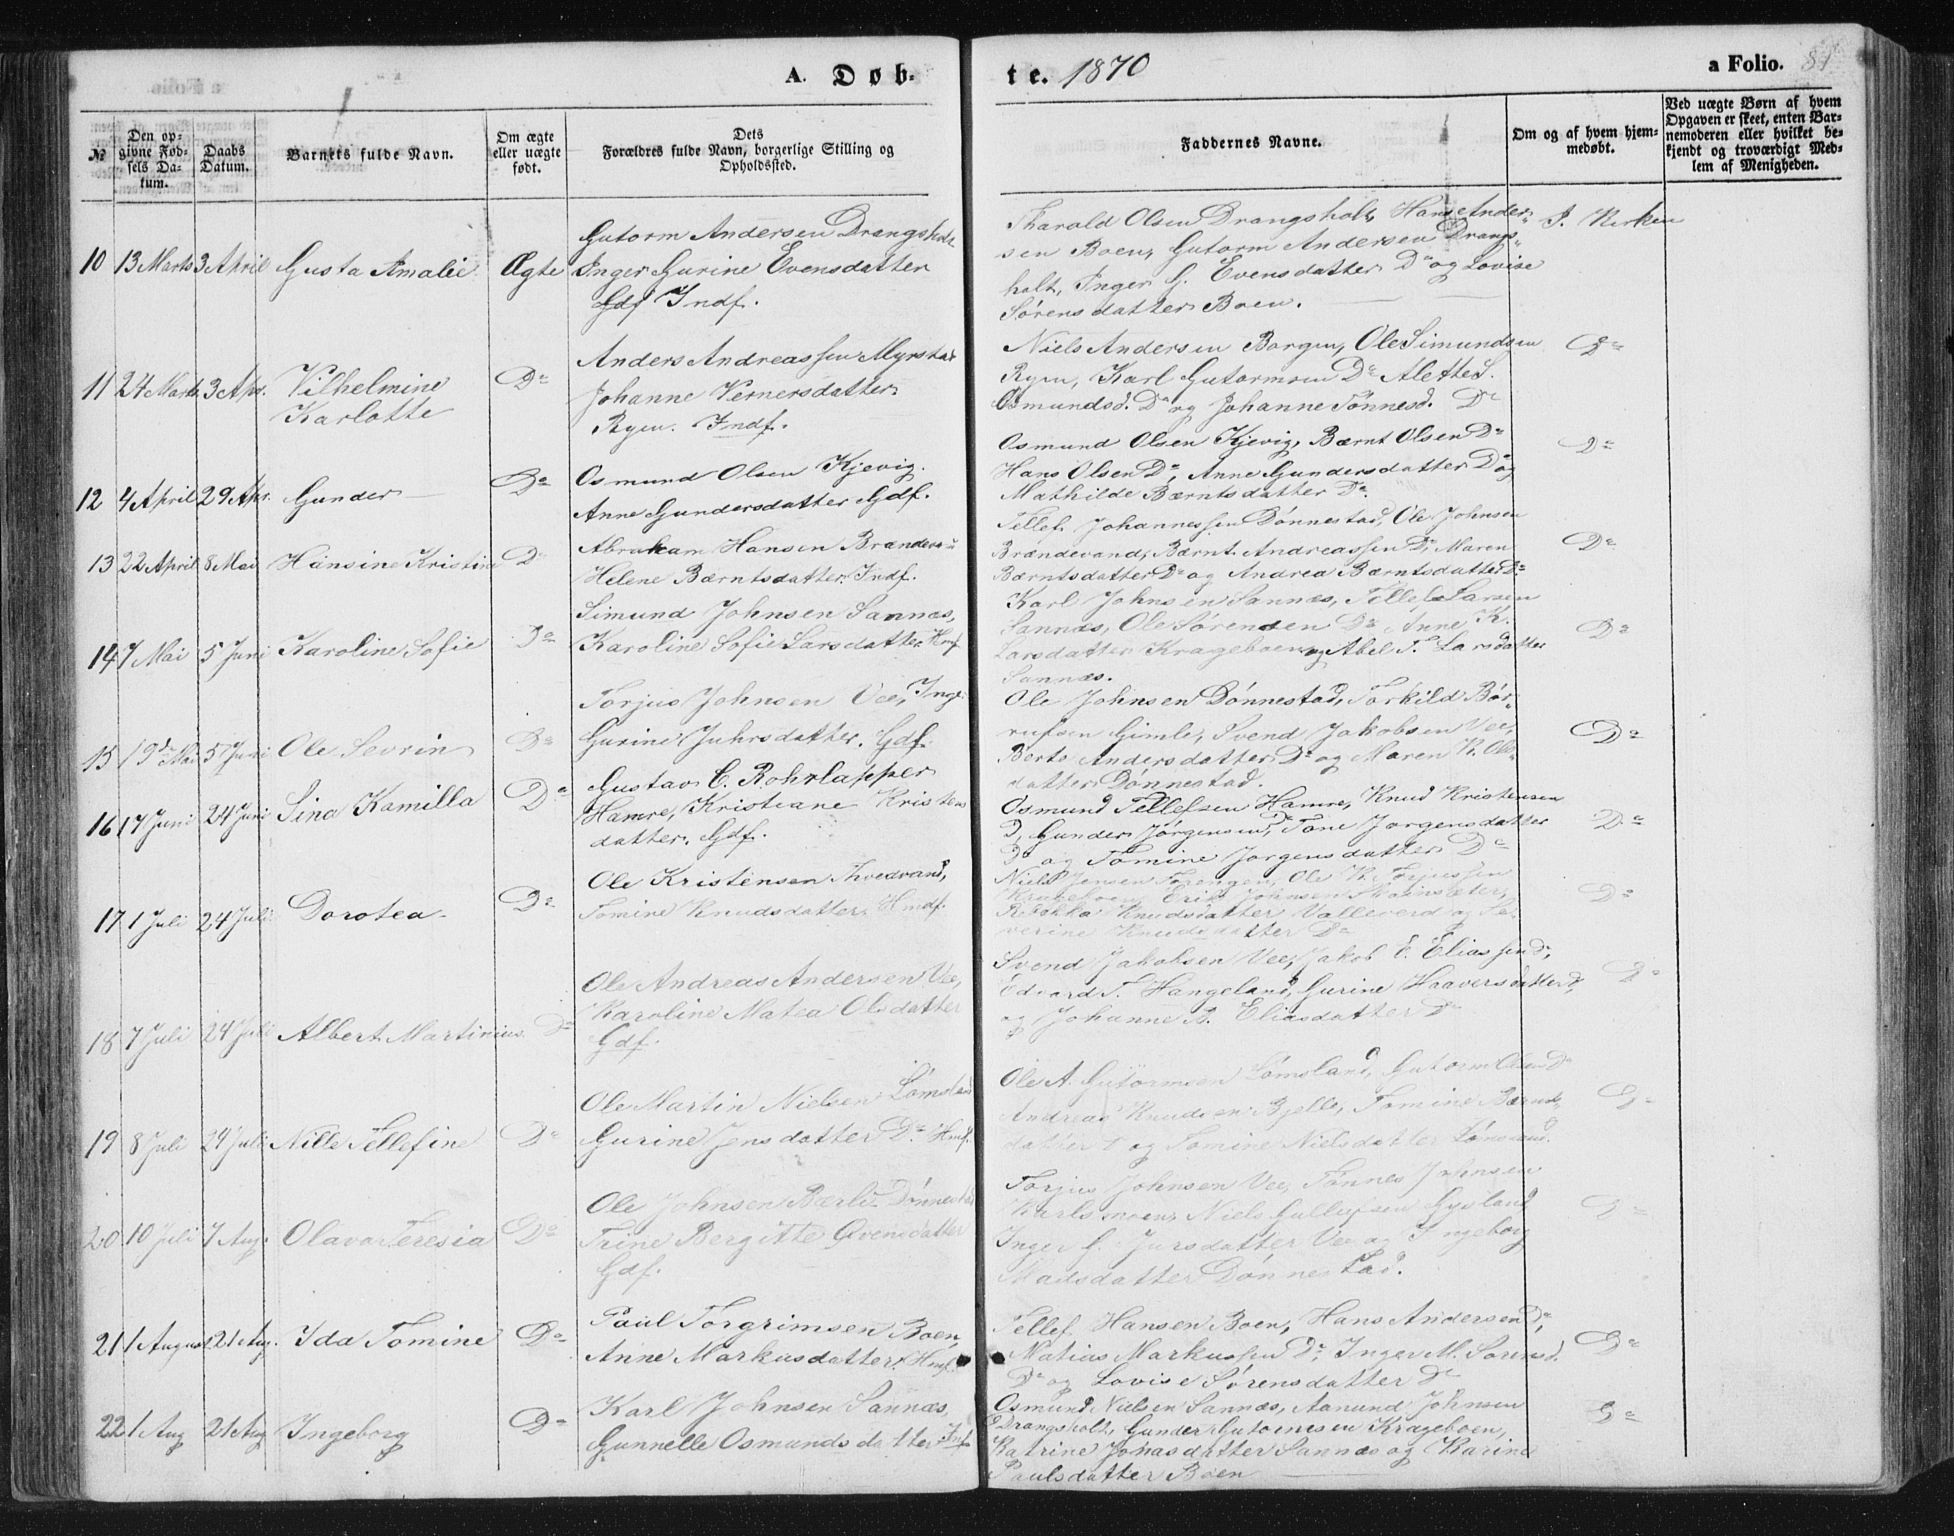 A. Døb-
te. 1870
a Folio. 81
№
Den opgivne Fødsels Datum.
Daabs Datum.
Barnets fulde Navn.
Om ægte eller uægte født.
Dets
Forældres fulde Navn, borgerlige Stilling og
Opholdssted.
Faddernes Navne.
Om og af hvem hjemmedøbt.
Ved uægte Børn af hvem
Opgaven er skeet, enten Bar-
nemoderen eller hvilket be-
kjendt og troværdigt Med-
lem af Menigheden.
10 13 Marts 3 April Gusta Amalie Ægte
Gutorm Andersen Drangsholt
Inger Gurine Evensdatter
Gdf Indf.
Tharald Olsen Drangsholt, Hans Ander-
sen Boen, Gutorm Andersen Drangs-
holt, Inger G. Evensdatter Do og Lovise
Sørensdatter Boen.
I. Kirken
11 24 Marts 3 Apr. Vilhelmine
Karlotte
Do
Anders Andreassen Myrstad
Johanne Vernersdatter
Ryen. Indf.
Niels Andersen Borgen, Ole Simundsen
Ryen, Karl Gutormsen Do Alette S.
Osmundsd. Do og Johanne Tønnesd. Do
Do
12 4 April 29 Apr. Gunder Do
Osmund Olsen Kjevig.
Anne Gundersdatter Gdf.
Osmund Olsen Kjevig, Bærnt Olsen Do
Hans Olsen Do, Anne Gundersdatter Do og
Mathilde Bærntsdatter Do.
Do
13 22 April 8 Mai Hansine Kristine D
Abraham Hansen Brændev
Helene Bærntsdatter. Indf.
Tellef Johannessen Dønnestad, Ole Johnsen
Brændevand, Bærnt Andreassen Do, Maren
Bærntsdatter Do og Andrea Bærntsdatter Do.
Do
14 7 Mai 5 Juni Karoline Sofie Do
Simund Johnsen Sannæs,
Karoline Sofie Larsdatter. Hmf
Karl Johnsen Sannæs, Tellef Larsen
Sannæs, Ole Sørensen Do Anne K.
Larsdatter Krageboen og Abel T. Larsdatter
Sannæs.
Do
15 19de Mai 5 Juni Ole Sevrin Do
Torjus Johnsen Vee, Inger
Gurine Juhrsdatter. Gdf.
Ole Johnsen Dønnestad, Torkild Bør-
rufsen Gimle, Svend Jakobsen Vee,
Berte Andersdatter Do og Maren K. Ols-
datter Dønnestad.
Do
16 17 Juni 24 Juni Sina Kamilla Do
Gustav C. Rohrlapper
Hamre, Kristiane Kristens
datter. Gdf.
Osmund Tellefsen Hamre, Knud Kristensen
D, Gunder Jørgensen Do, Tone Jørgensdatter
Do og Tomine Jørgensdatter Do
Do
17 1 Juli 24 Juli Dorotea Do
Ole Kristensen Tvedvand,
Tomine Knudsdatter. Hmdf.
Niels Jensen Ole K. Torjussen
Krageboen, Erik Johnsen
Rebekka Knudsdatter Valleverd og Se-
verine Knudsdatter Do
Do
18 7 Juli 24 Juli Albert Martinius. Do
Ole Andreas Andersen Vee,
Karoline Matea Olsdatter
Gdf.
Svend Jakobsen Vee, Jakob E. Eliassen Do,
Edvard T. Hangeland, Gurine Haaversdatter Do,
og Johanne R. Eliasdatter Do
Do
19 8 Juli 24 Juli Nille Tellefine Do
Ole Martin Nielsen Lømsland
Gurine Jensdatter Do. Hmf.
Ole A. Gutormsen Lømsland, Gutorm Olsen Do
Andreas Knudsen Bjelle, Tomine Bærnds-
datter og Tomine Nielsdatter Lømsland.
20 10 Juli 7 Aug. Olava Teresia Do
Ole Johnsen Bærli Dønnestad
Trine Bergitte Evensdatter
Gdf.
Torjus Johnsen Vee, Tønnes Johnsen
Karlsmoen, Niels Gullufsen Gysland
Inger G. Jursdatter Vee og Ingeborg
Madsdatter Dønnestad.
21 1 August 21 Aug. Ida Tomine Do
Paul Torgrimsen Boen,
Anne Markusdatter. Hmf.
Tellef Hansen Boen, Hans Andersen Do,
Matias Markussen Do, Inger M. Sørensd.
Do og Lovise Sørensdatter Do
Do
22 1 Aug 21 Aug Ingeborg Do
Karl Johnsen Sannæs,
Gunnelle Osmundsdatter Inf
Osmund Nielsen Sannæs, Aanund Johnsen
Drangsholt, Gunder Gutormsen Krageboen,
Katrine Jonasdatter Sannæs og Karine
Paulsdatter Boen
Do